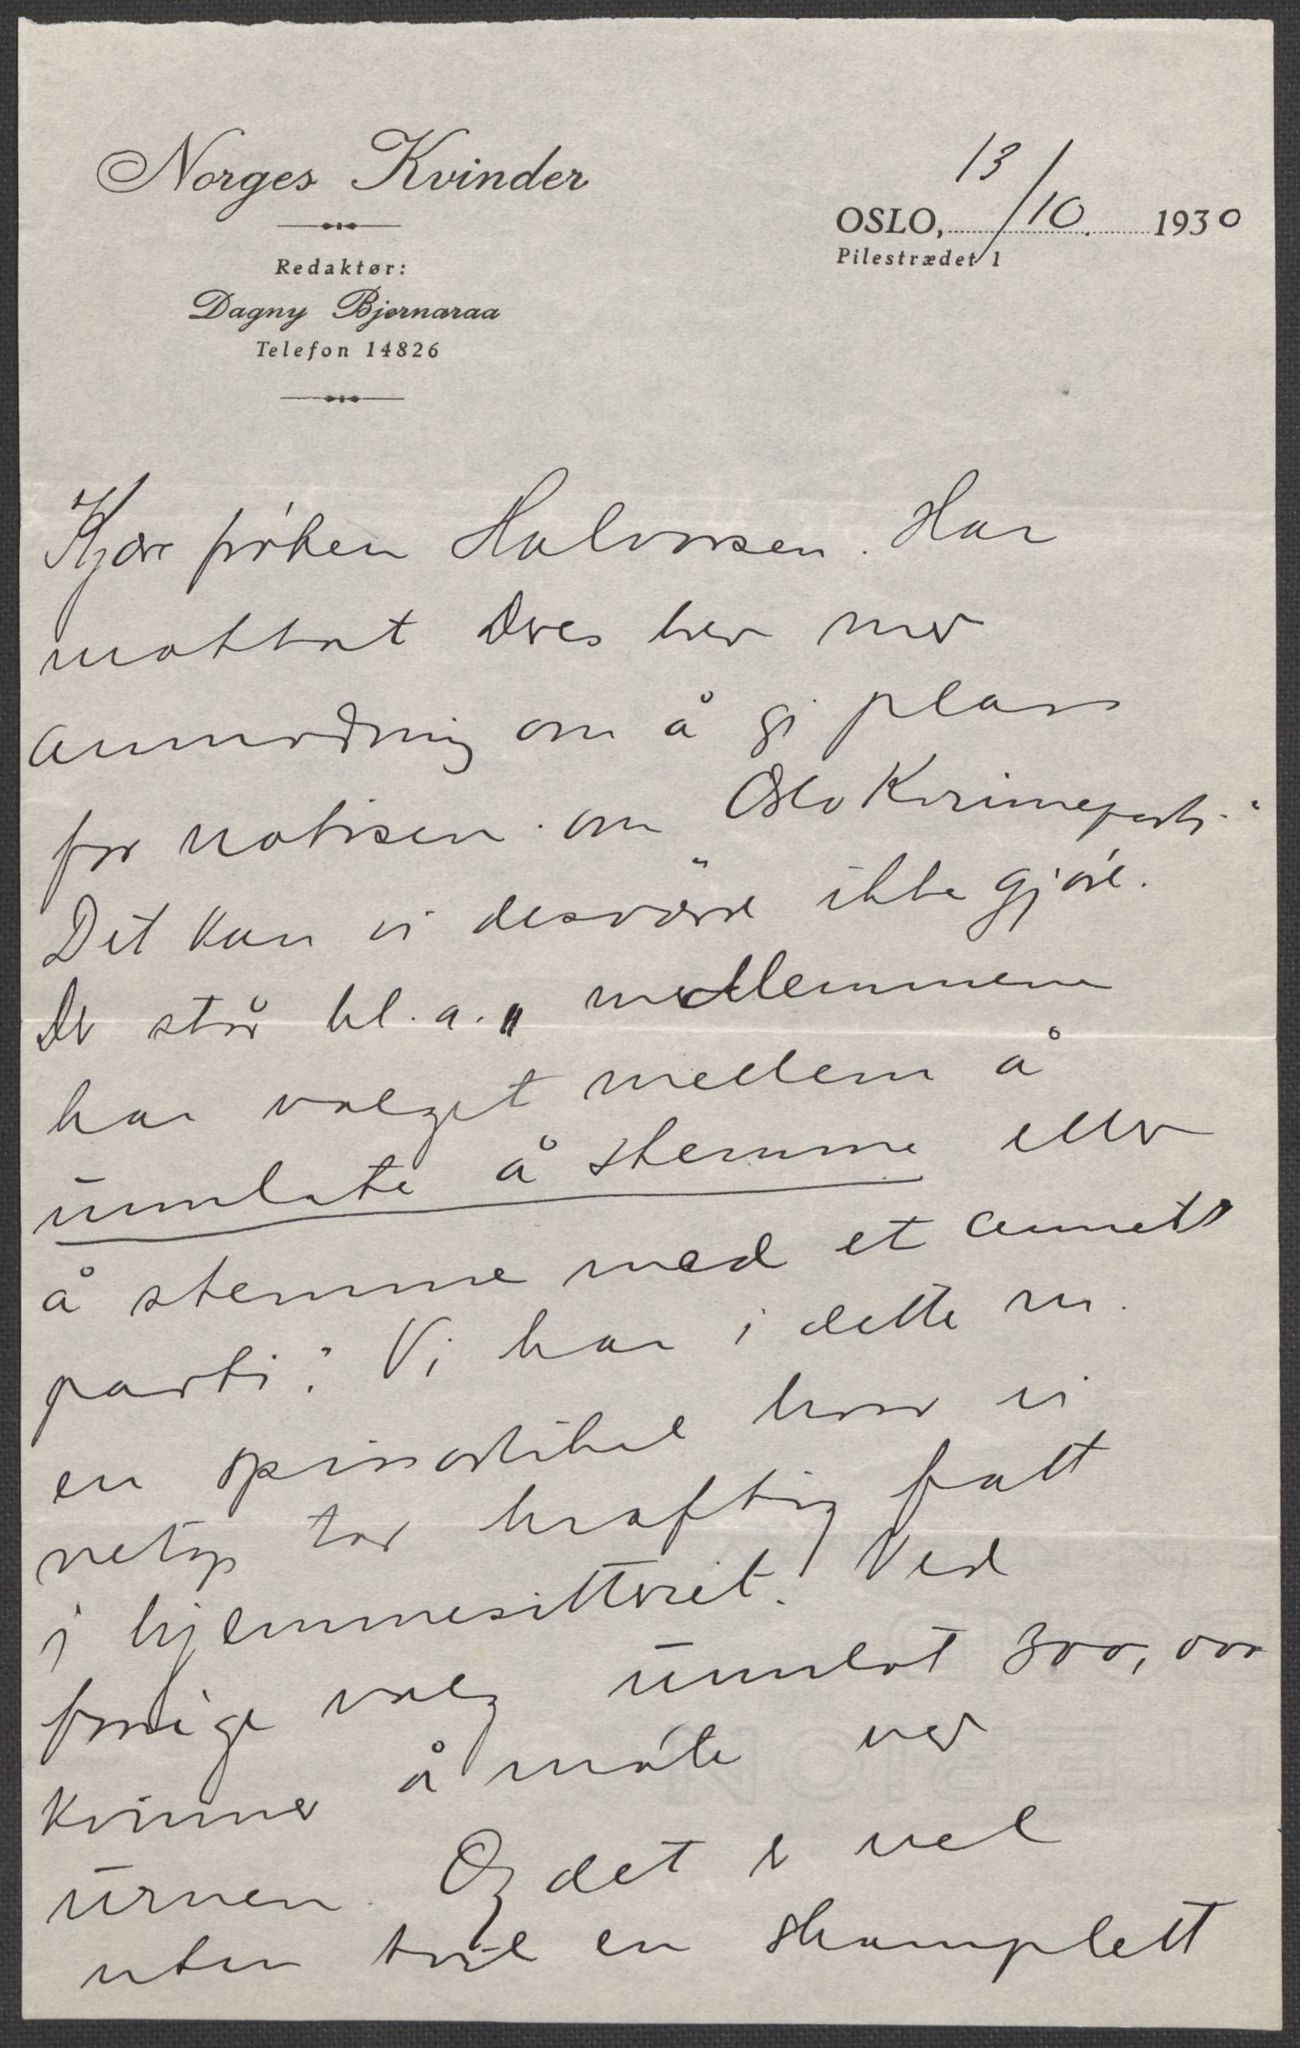 Norges Kvinder
Redaktør:
Dagny Bjørnaraa
Telefon 14826
OSLO, 13/10. 1930
Pilestrædet 1
Kjære frøken Halvorsen. Har
mottat Deres brev med
anmodning om å gi plass
for notisen om Oslo Kvinneparti."
Det kan vi desværre ikke gjøre.
Der står bl. a. „medlemmene
har valget mellem å
unnlate å stemme eller
å stemme med et annet
parti." Vi har i dette nr.
en spissartikel hvor vi
netop tar kraftig fatt
i hjemmesitteriet. Ved
forrige valg unnlot 300,000
kvinner å møte ved
urnen. Og det er vel
uten tvil en skamplett